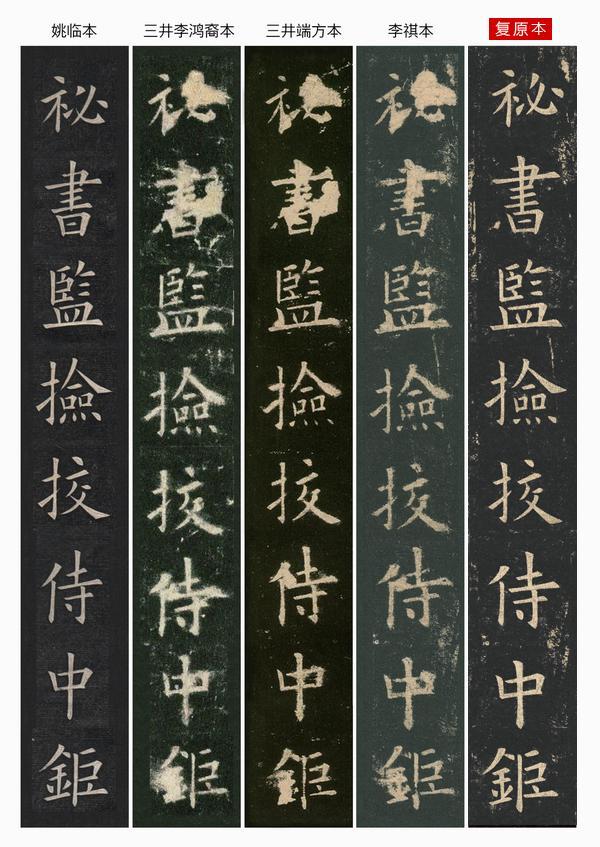 姚临本
三井李鸿裔本
三井端方本
李祺本
复原本
祕書監撿挍侍中鉅
祕書監撿挍侍中鉅
祕書監撿挍侍中鉅
祕書監撿挍侍中鉅
祕書監撿挍侍中鉅